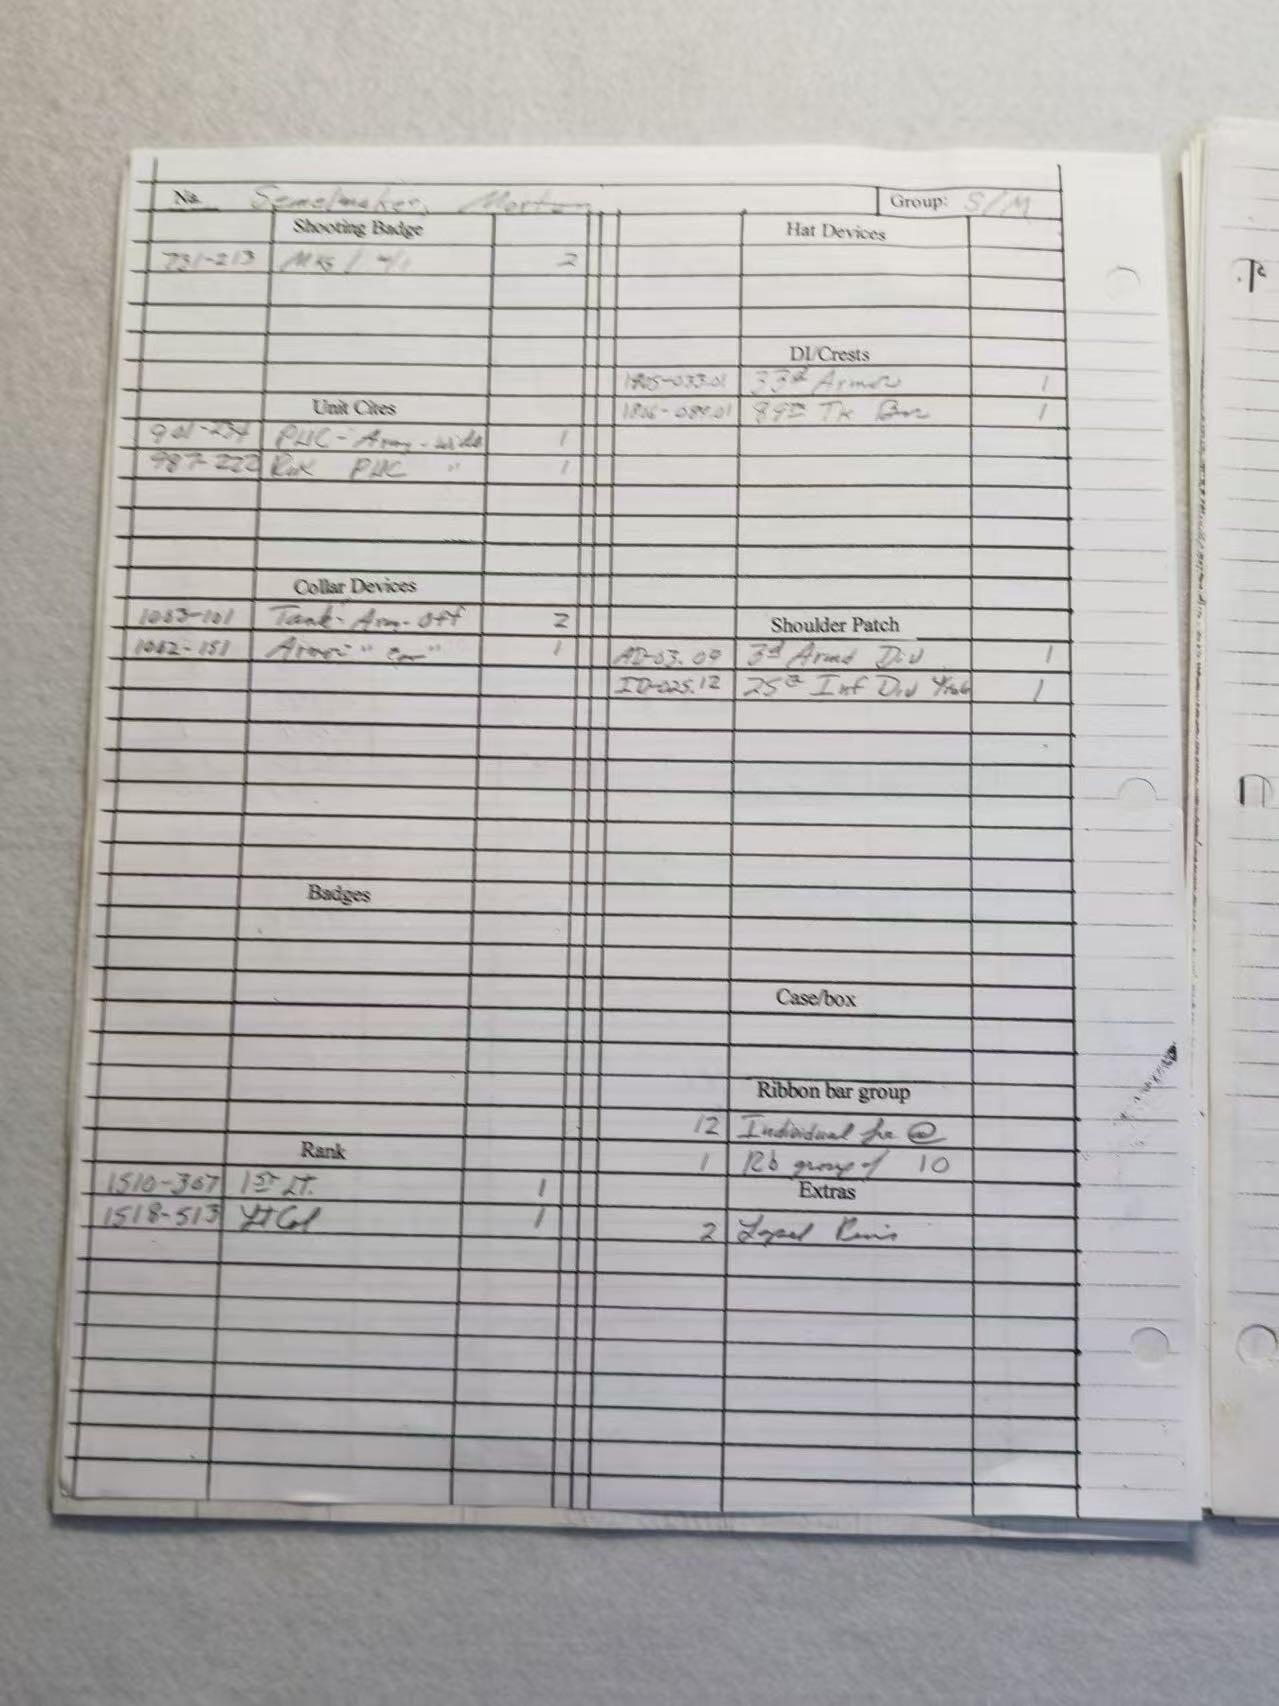 Na. Semelmaker, Morton Group: S/M
Shooting Badge
731-213 Mks / w/1 2
Unit Cites
901-234 PUC - Army - wide 1
987-222 RoK PUC " 1
Collar Devices
1003-101 Tank - Arm - Off 2
1002-151 Armor " em " 1
Badges
Rank
1510-307 1st Lt. 1
1518-513 Lt Col 1
Hat Devices
DI/Crests
1805-033.01 33d Armor 1
1806-089.01 89th Tk Bn 1
Shoulder Patch
AD-03.09 3d Armd Div 1
ID-025.12 25th Inf Div 1
Case/box
Ribbon bar group
12 Individual for @
1 Rb group of 10
Extras
2 Lapel Pins